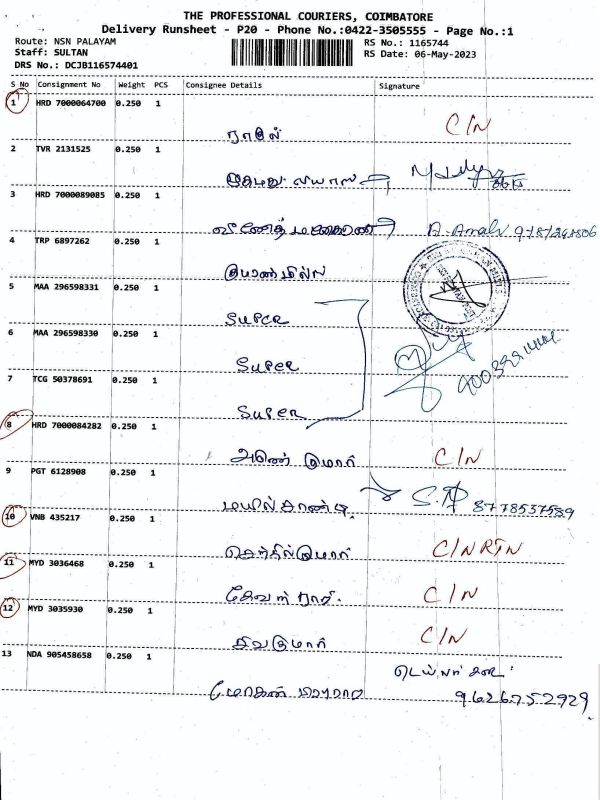 THE PROFESSIONAL COURIERS, COIMBATORE
Delivery Runsheet - P20 - Phone No.:0422-3505555 - Page No.:1
Route: NSN PALAYAM RS No.: 1165744
Staff: SULTAN RS Date: 06-May-2023
DRS No.: DCJB116574401
S No Consignment No Weight PCS Consignee Details Signature
1 HRD 7000064700 0.250 1
ராகுல் C/N
2 TVR 2131525 0.250 1
3 HRD 7000089085 0.250 1
9787241806
4 TRP 6897262 0.250 1
5 MAA 296598331 0.250 1
SUPER
6 MAA 296598330 0.250 1
SUPER
7 TCG 50378691 0.250 1
SUPER
8 HRD 7000084282 0.250 1
அருண் குமார் C/N
9 PGT 6128908 0.250 1
மயில்சாண்டி 8778537589
10 VNB 435217 0.250 1
செந்தில்குமார் C/N RTN
11 MYD 3036468 0.250 1
C/N
12 MYD 3035930 0.250 1
சிவகுமார் C/N
13 NDA 905458658 0.250 1
டெய்லர் கடை
மோகன் 9626752929